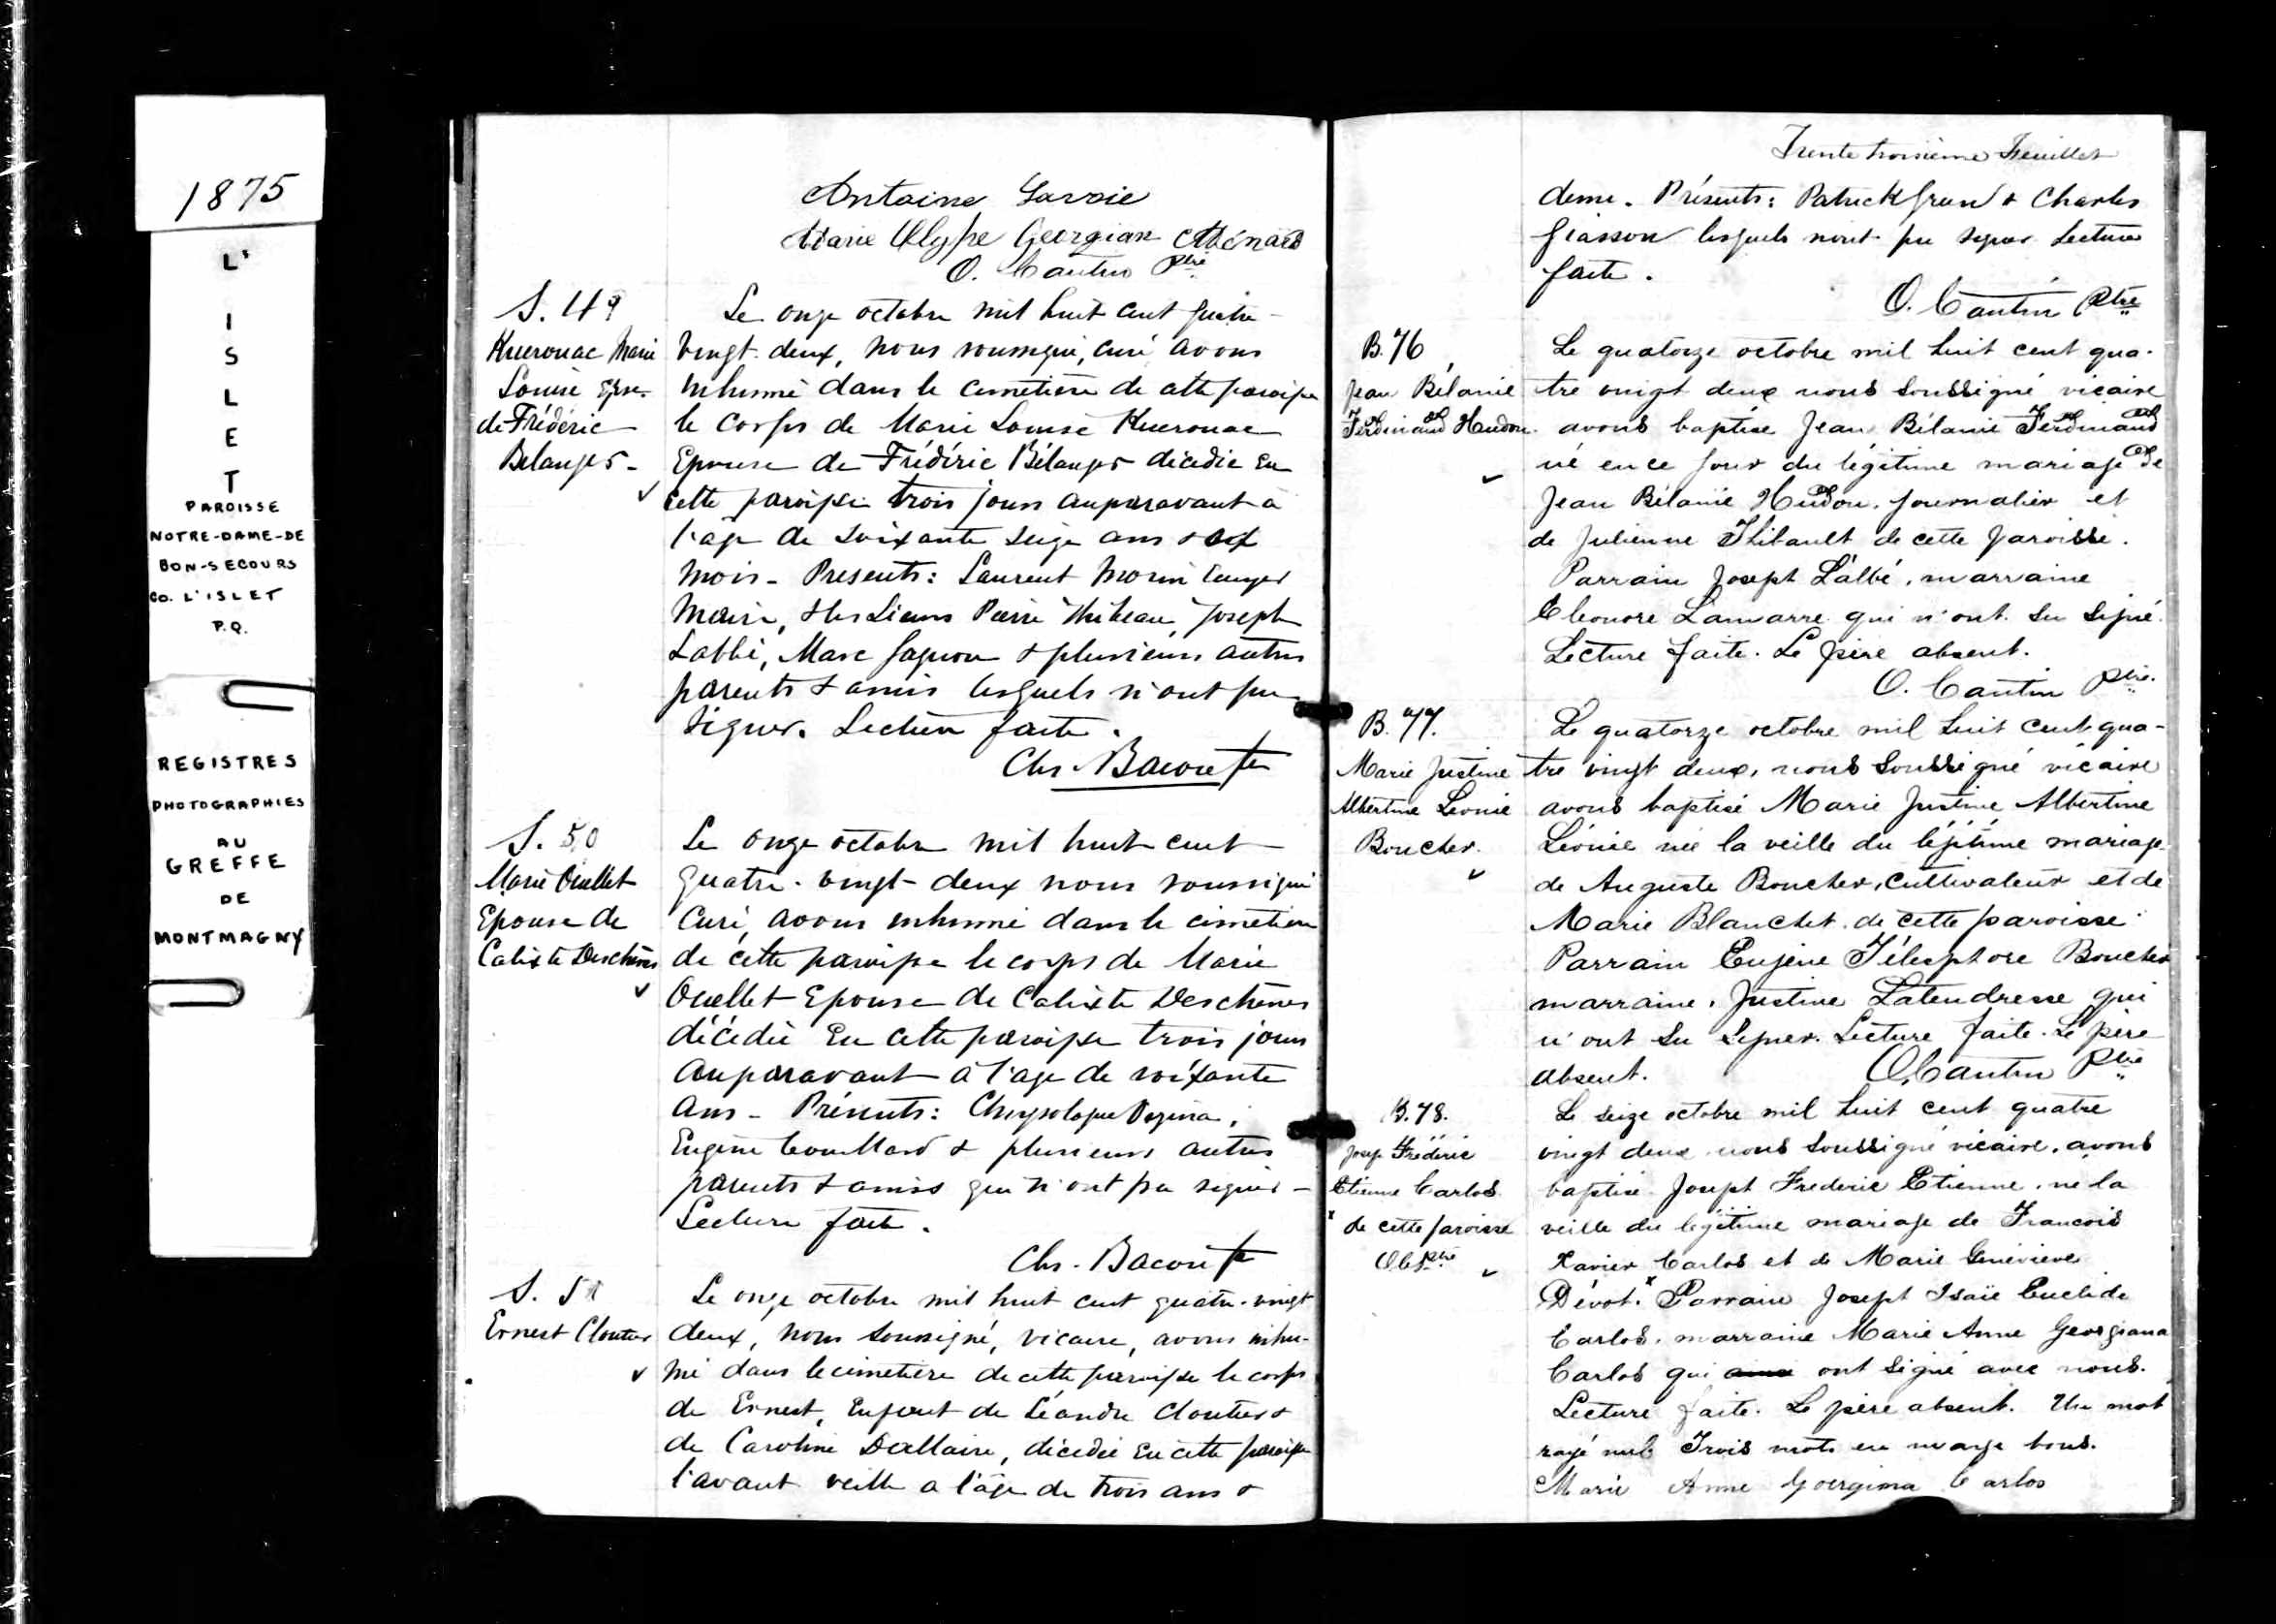 1875
L'
I
S
L
E
T
PAROISSE
NOTRE-DAME-DE
BON-SECOURS
CO. L'ISLET
P.Q.
REGISTRES
PHOTOGRAPHIES
AU
GREFFE
DE
MONTMAGNY
Antoine Savoie
Marie Georgian
O. Cantin Ptre
S. 49
Kuerouac Marie
Louise Epse
de Frédéric
Belanger
Le onze octobre mil huit cent quatre-
vingt-deux, nous soussigné, curé avons
inhumé dans le cimetière de cette paroisse
le corps de Marie Louise Kuerouac
Epouse de Frédéric Bélanger décédée en
cette paroisse trois jours auparavant à
l'âge de soixante seize ans &
mois - Presents: Laurent Morin
& les Sieurs Pierre Thibeau, Joseph
Labbé, Marc Gagnon & plusieurs autres
parents & amis lesquels n'ont pu
signer. Lecture faite.
Chs. Bacon Ptre
S. 50
Marie Ouellet
Epouse de
Calixte Deschênes
Le onze octobre mil huit cent
quatre-vingt-deux nous soussigné
Curé, avons inhumé dans le cimetière
de cette paroisse le corps de Marie
Ouellet Epouse de Calixte Deschênes
décédée En cette paroisse trois jours
auparavant à l'age de soixante
ans - Présents: Chrysologue
Eugène & plusieurs autres
parents & amis qui n'ont pu signer -
Lecture faite.
Chs. Bacon Ptre
S. 51
Ernest Cloutier
Le onze octobre mil huit cent quatre-vingt
deux, nous soussigné, vicaire, avons inhu-
mé dans le cimetière de cette paroisse le corps
de Ernest, Enfant de Léandre Cloutier &
de Caroline Dallaire, décédé en cette paroisse
l'avant veille a l'âge de trois ans &
Trente troisième Feuillet
demi. Présents: Patrick & Charles
Giasson lesquels n'ont pu signer Lecture
faite.
O. Cantin Ptre
B. 76
Jean Bélanie
Ferdinand Hudon
Le quatorze octobre mil huit cent qua-
tre vingt deux nous soussigné vicaire
avons baptisé Jean Bélanie Ferdinand
né en ce jour du légitime mariage de
Jean Bélanie Hudon, journalier et
de Julienne Thibault de cette paroisse.
Parrain Joseph Labbé, marraine
Eleonore Lamarre qui n'ont su signé.
Lecture faite. Le père absent.
O. Cantin Ptre.
B. 77.
Marie Justine
Albertine Leonie
Boucher.
Le quatorze octobre mil huit cent qua-
tre vingt deux, nous soussigné vicaire
avons baptisé Marie Justine Albertine
Léonie née la veille du légitime mariage
de Auguste Boucher, cultivateur et de
Marie Blanchet de cette paroisse
Parrain Eugène Télesphore Boucher
marraine, Justine Latendresse qui
n'ont su signer. Lecture faite. Le père
absent. O. Cantin Ptre
B. 78.
Josep Frédéric
Etienne Carlos
x de cette paroisse
O C Ptre
Le seize octobre mil huit cent quatre
vingt deux nous soussigné vicaire, avons
baptisé Joseph Frederic Etienne, né la
veille du légitime mariage de Francois
Xavier Carlos et de Marie Geneviève
Dévot.x Parrain Joseph Isaïe Euclide
Carlos, marraine Marie Anne Georgiana
Carlos qui ont signé avec nous.
Lecture faite. Le père absent. Un mot
rayé nul Trois mots en marge bons.
Marie Anne Goergina Carlos